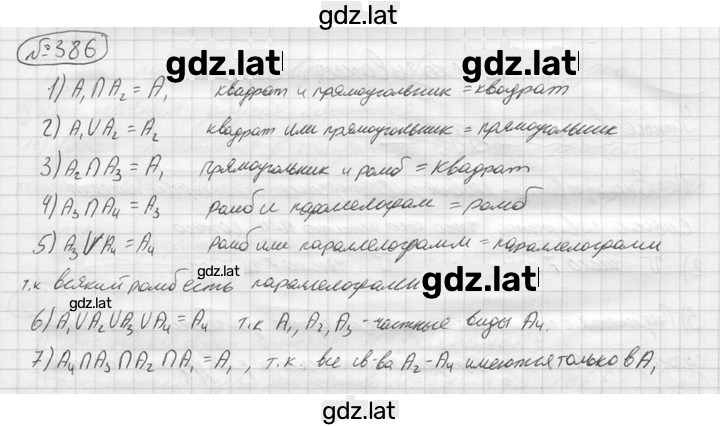 gdz.lat
№386
gdz.lat gdz.lat
1) A₁∩A₂ = A₁ квадрат и прямоугольник = квадрат
2) A₁∪A₂ = A₂ квадрат или прямоугольник = прямоугольник
3) A₂∩A₃ = A₁ прямоугольник и ромб = квадрат
4) A₃∩A₄ = A₃ ромб и параллелограм = ромб
5) A₃∪A₄ = A₄ ромб или параллелограмм = параллелограмм
gdz.lat gdz.lat
т.к всякий ромб есть параллелограмм
gdz.lat
6) A₁∪A₂∪A₃∪A₄ = A₄ т.к A₁, A₂, A₃ - частные виды A₄.
7) A₄∩A₃∩A₂∩A₁ = A₁, т.к. все св-ва A₂-A₄ имеются только в A₁
gdz.lat